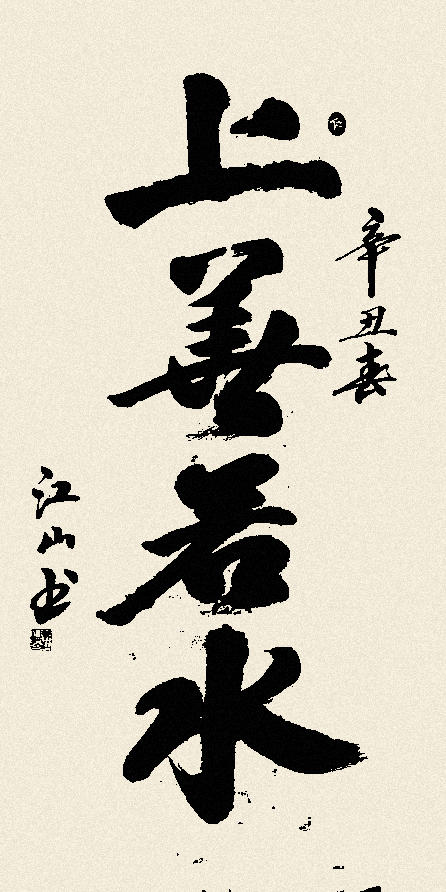 上善若水
辛丑春
江山书